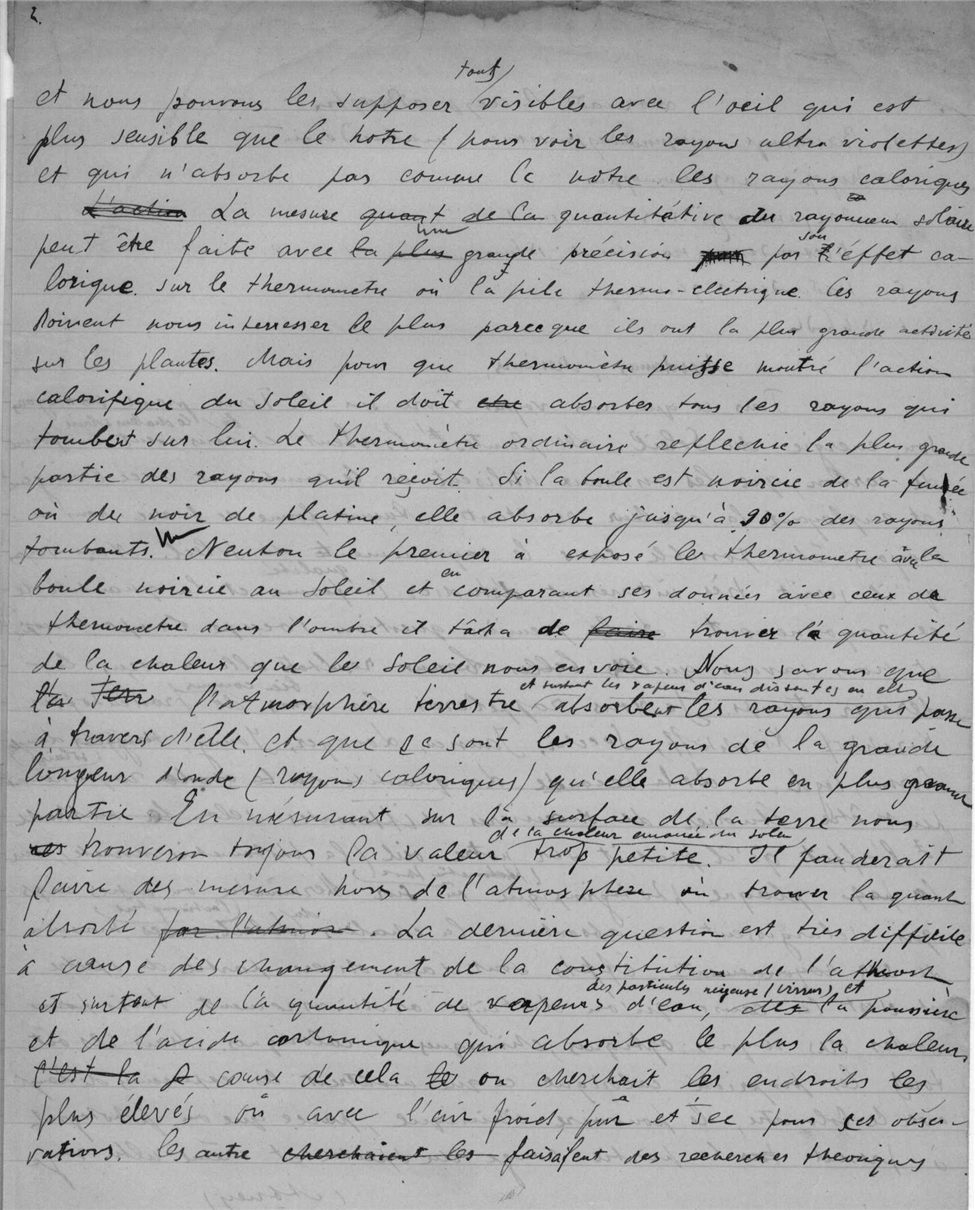 2.
tous
et nous pouvons les supposer visibles avec l'oeil qui est
plus sensible que le notre (pour voir les rayons ultra violettes)
et qui n'absorbe pas comme le notre les rayons caloriques
L'action La mesure quant de la quantitative du rayonnem solaire
une
son
peut être faite avec la plus grande précision par l'éffet ca-
lorique sur le thermometre où la pile thermo-electrique. Ces rayons
doivent nous interresser le plus parceque ils ont la plus grande activité
sur les plantes. Mais pour que thermomètre puisse montré l'action
calorifique du Soleil il doit etre absorber tous les rayons qui
tombent sur lui. Le thermomètre ordinaire reflechie la plus grande
partie des rayons qu'il reçoit. Si la boule est noircie de la fumée
où du noir de platine, elle absorbe jusqu'à 90% des rayons
tombants. Neuton le premier à exposé le thermometre à la
boule noircie au Soleil et en comparant ses données avec ceux de
thermometre dans l'ombre il tâcha de faire trouver la quantité
de la chaleur que le Soleil nous envoie. Nous savons que
et surtout les vapeurs d'eau dissoutes en elle
la Terr l'atmorphère terrestre absorbent les rayons qui passe
à travers d'elle, et que ce sont les rayons de la grande
longueur d'onde (rayons caloriques) qu'elle absorbe en plus grande
partie. En mésurant sur la surface de la terre nous
de la chaleur emanée du soleil
trouveron toujous la valeur trop petite. Il fauderait
faire des mesure hors de l'atmosphere où trouver la quant
absorbé par l'atmos. La dernière question est très difficile
à cause des changement de la constitution de l'atmosph
des particules neigeuse (cirrus), et
et surtout de la quantité de vapeurs d'eau, des la poussière
et de l'acide carbonique qui absorbe le plus la chaleur
C'est la cause de cela on cherchait les endroits les
plus élevés où avec l'air froid, pur et sec pour ses obser-
vations. les autre cherchaient les faisaient des recherches theoriques